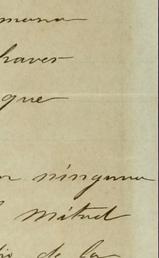 mana
haver
que
n ninguna
mitad
de la